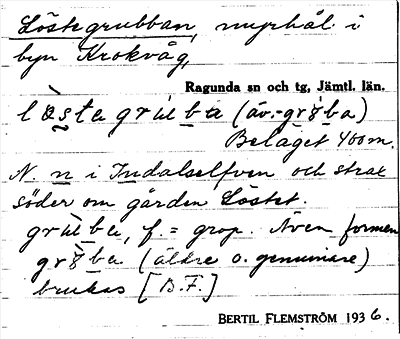 Löstegrubban, myrhål i
byn Krokvåg,
Ragunda sn och tg, Jämtl. län.
lös̀tagrùba (äv.-grò̤ba)
Beläget 400m.
N. n i Indalselfven och strax
söder om gården Löstet.
grùba, f. = grop. Även formen
grò̤ba (äldre o. genuinare)
brukas [B.F.]
BERTIL FLEMSTRÖM 1936.